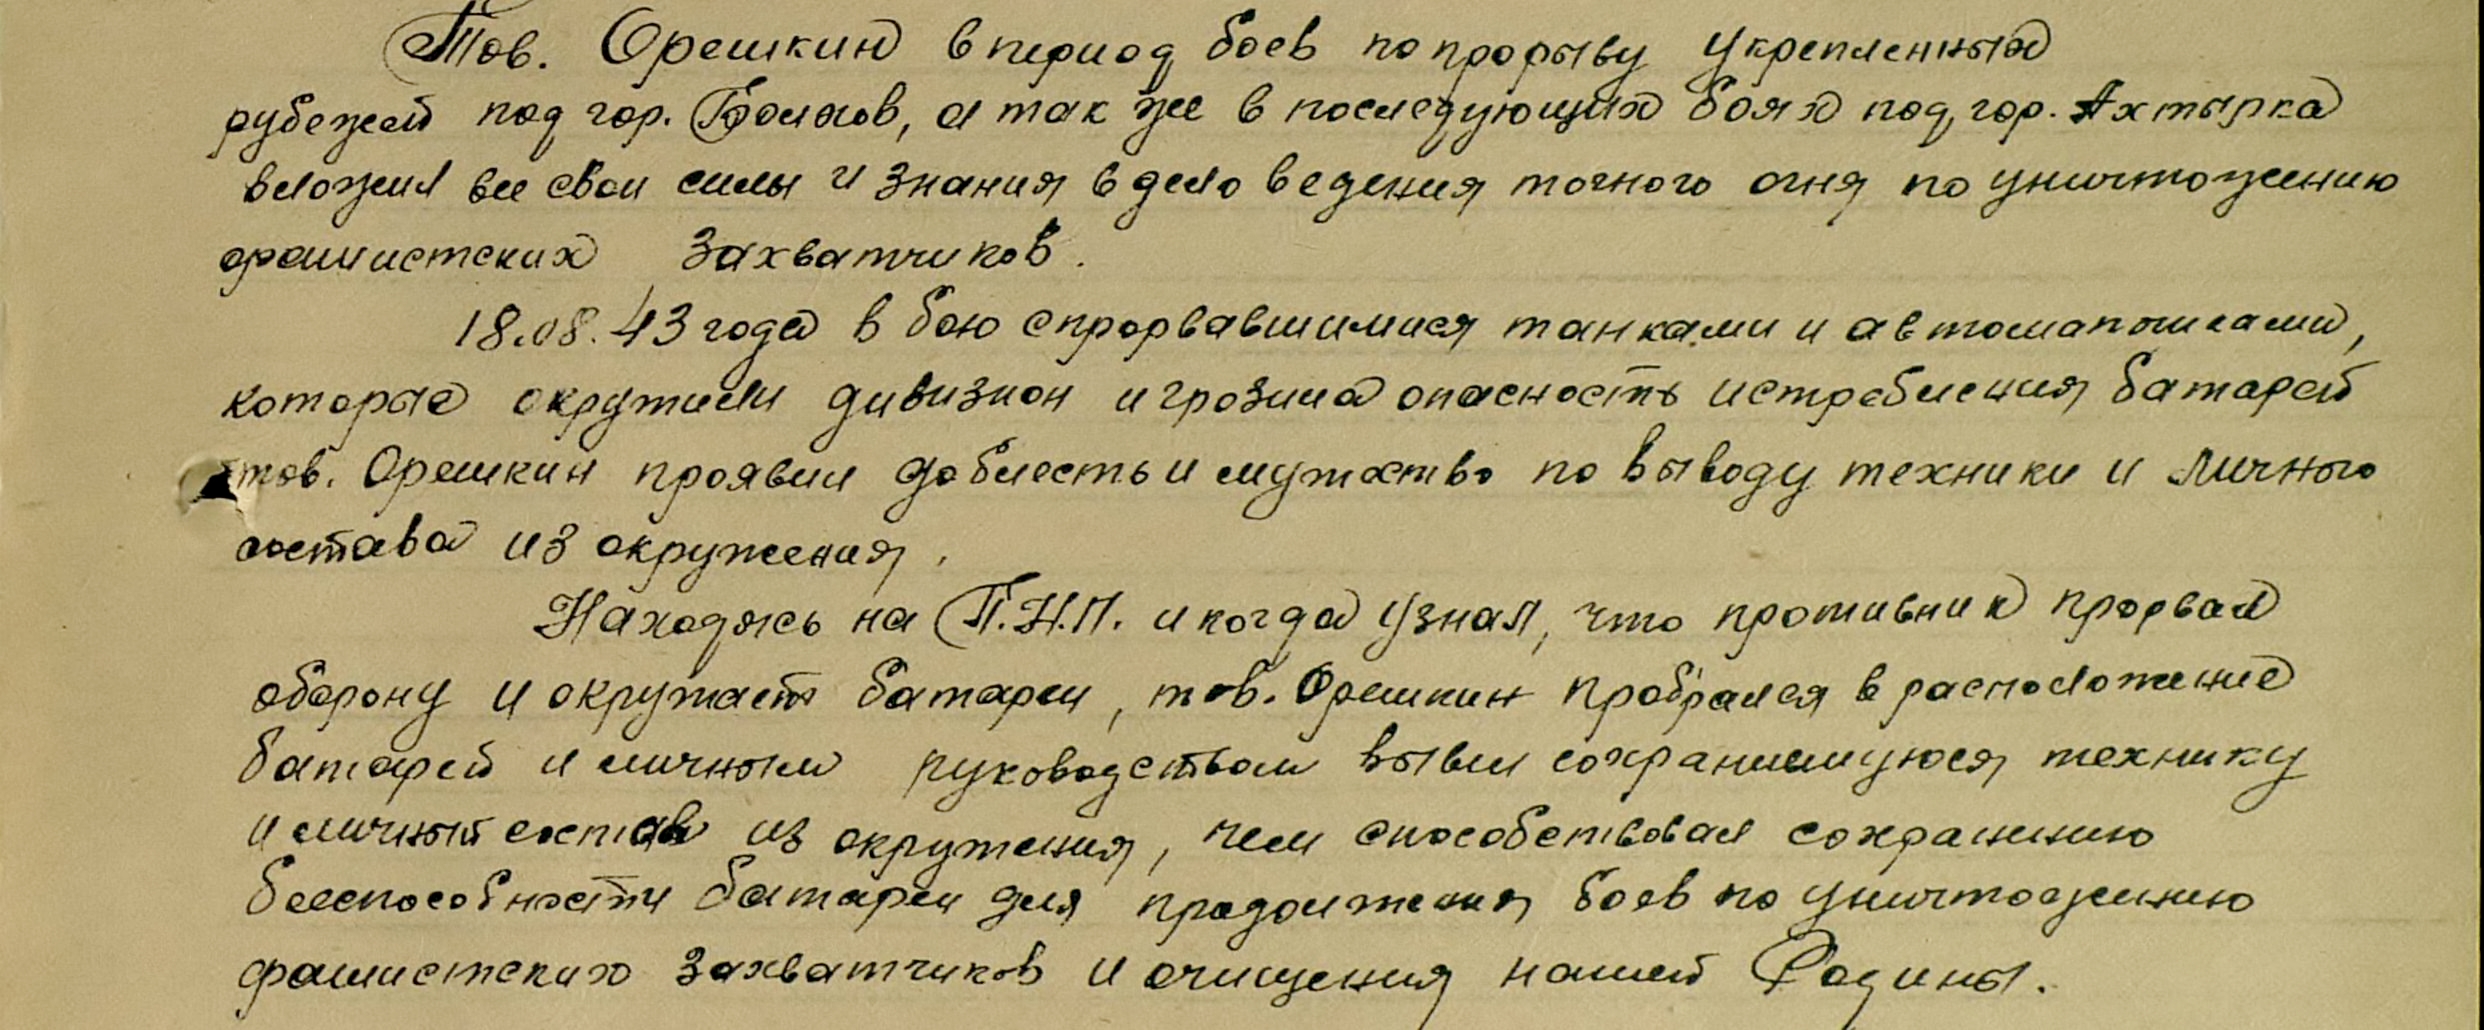 Тов. Орешкин в период боев по прорыву укрепленных
рубежей под гор. Болхов, а так же в последующих боях под гор. Ахтырка
вложил все свои силы и знания в дело ведения точного огня по уничтожению
фашистских захватчиков.
18.08.43 года в бою с прорвавшимися танками и автоматчиками,
которые окружили дивизион и грозила опасность истребления батарей
тов. Орешкин проявил доблесть и мужество по выводу техники и личного
состава из окружения.
Находясь на П.Н.П. и когда узнал, что противник прорвал
оборону и окружает батареи, тов. Орешкин пробрался в расположение
батарей и личным руководством вывел сохранившуюся технику
и личный состав из окружения, чем способствовал сохранению
боеспособности батареи для продолжения боев по уничтожению
фашистских захватчиков и очищения нашей Родины.